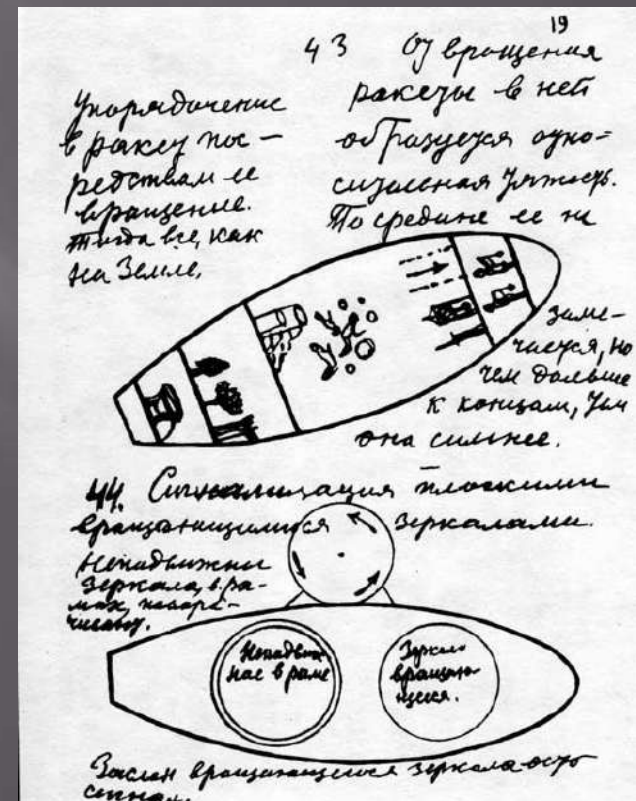 19
43 От вращения
ракеты в ней
образуется отно-
сительная тяжесть.
По средине ее не
заме-
чается, но
чем дальше
к концам, тем
она сильнее.
Упорядочение
в ракет пос-
редствам ее
вращение.
Тогда все, как
на Земле.
44. Сигнализация плоскими
вращающимися зеркалами.
Неподвижны
зеркала, в ра-
мах,
Неподвиж
ное в раме
Зеркало
вращаю-
щееся.
Заслон вращающегося зеркала
сигнал